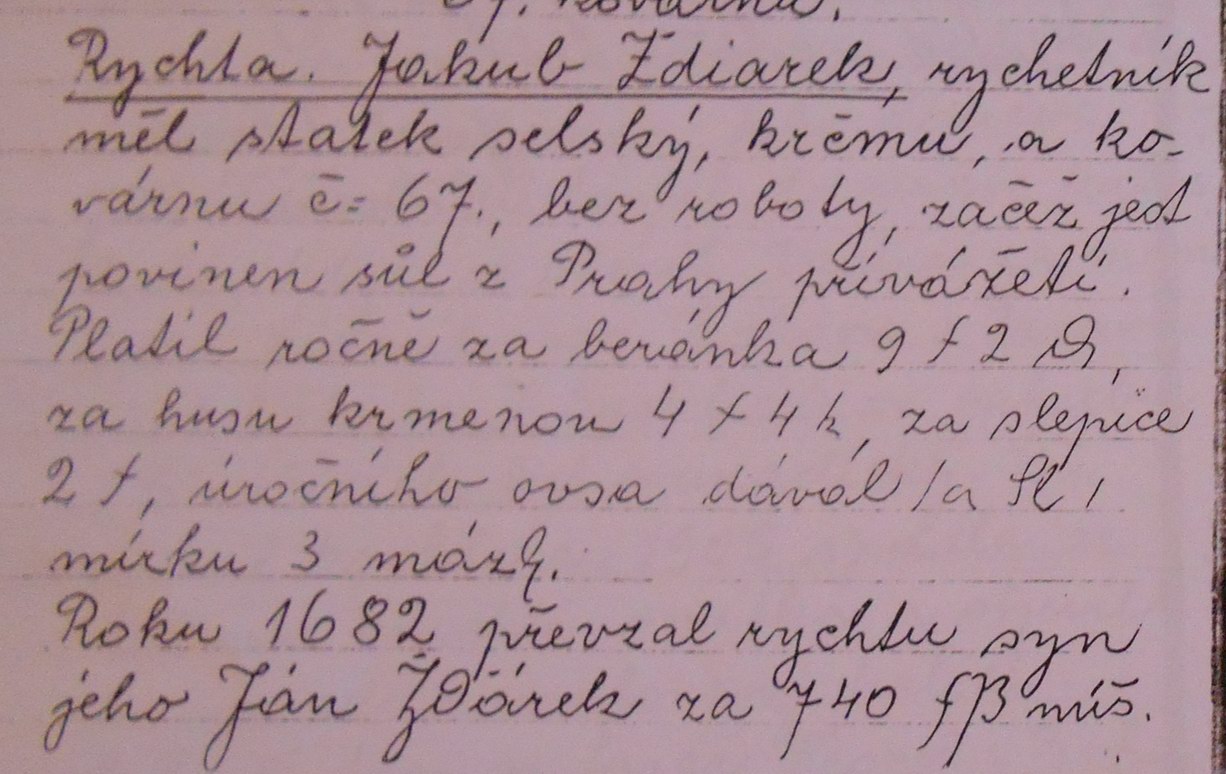 kovárna.
Rychta. Jakub Ždiarek, rychetník
měl statek selský, krčmu, a ko-
várnu č= 67., bez roboty, začež jest
povinen sůl z Prahy přivážeti.
Platil ročně za beránka 9 f 2
za husu krmenou 4 f 4 k, za slepice
2 f, úročního ovsa dával
mírku 3 mázly.
Roku 1682 převzal rychtu syn
jeho Ján Žďárek za 740 fβ míš.